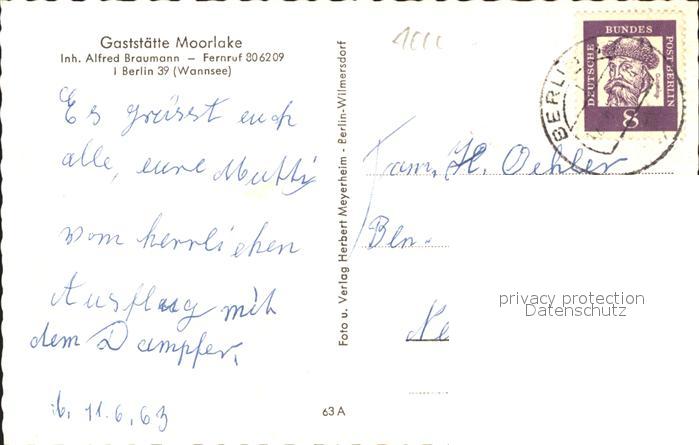 Gaststätte Moorlake
Inh. Alfred Braumann – Fernruf 806209
1 Berlin 39 (Wannsee)
Es grüsst euch
alle, eure Mutti
vom herrlichen
Ausflug mit
dem Dampfer.
11.6.63
63 A
Foto u. Verlag Herbert Meyerheim · Berlin-Wilmersdorf
DEUTSCHE BUNDES POST BERLIN
8
BERLIN
Fam. H. Oehler
Bln.
Ne
privacy protection
Datenschutz